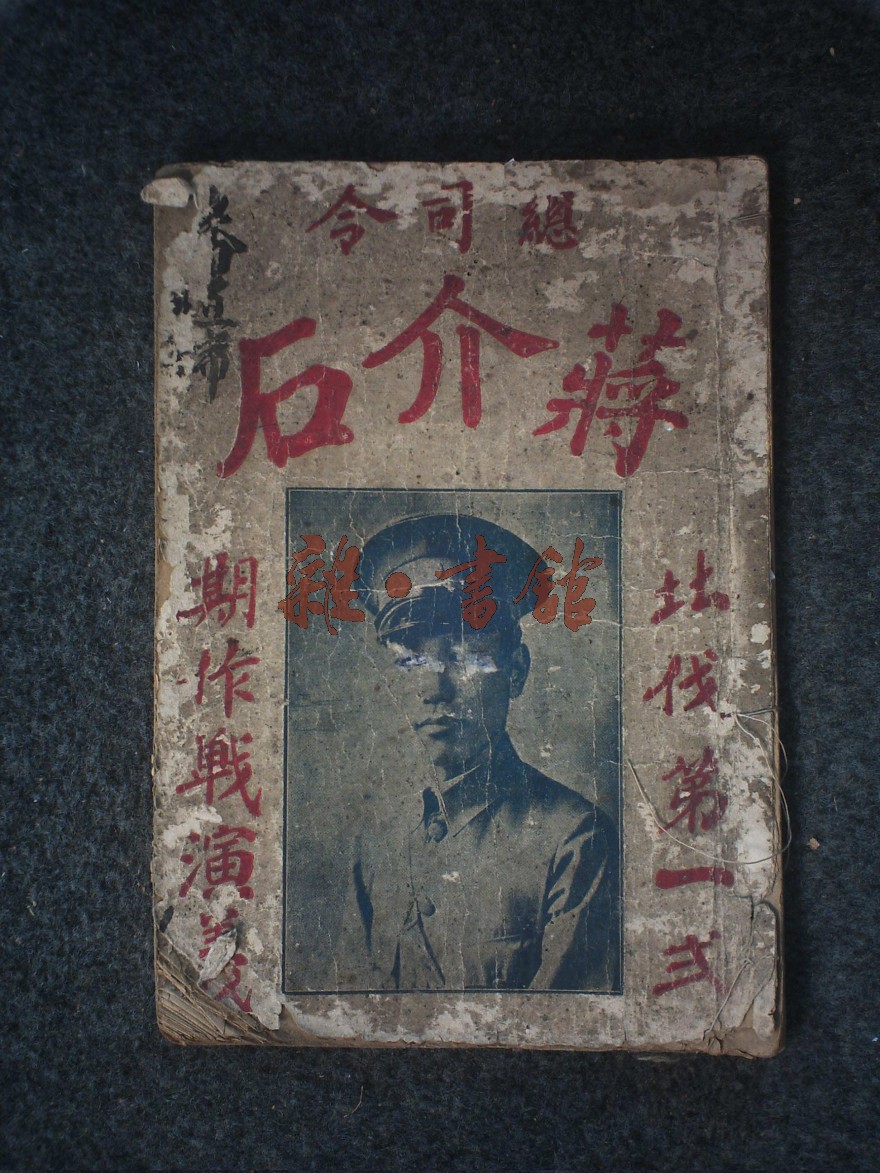 總司令
蔣介石
北伐第一弍
期作戰演義
雜·書館